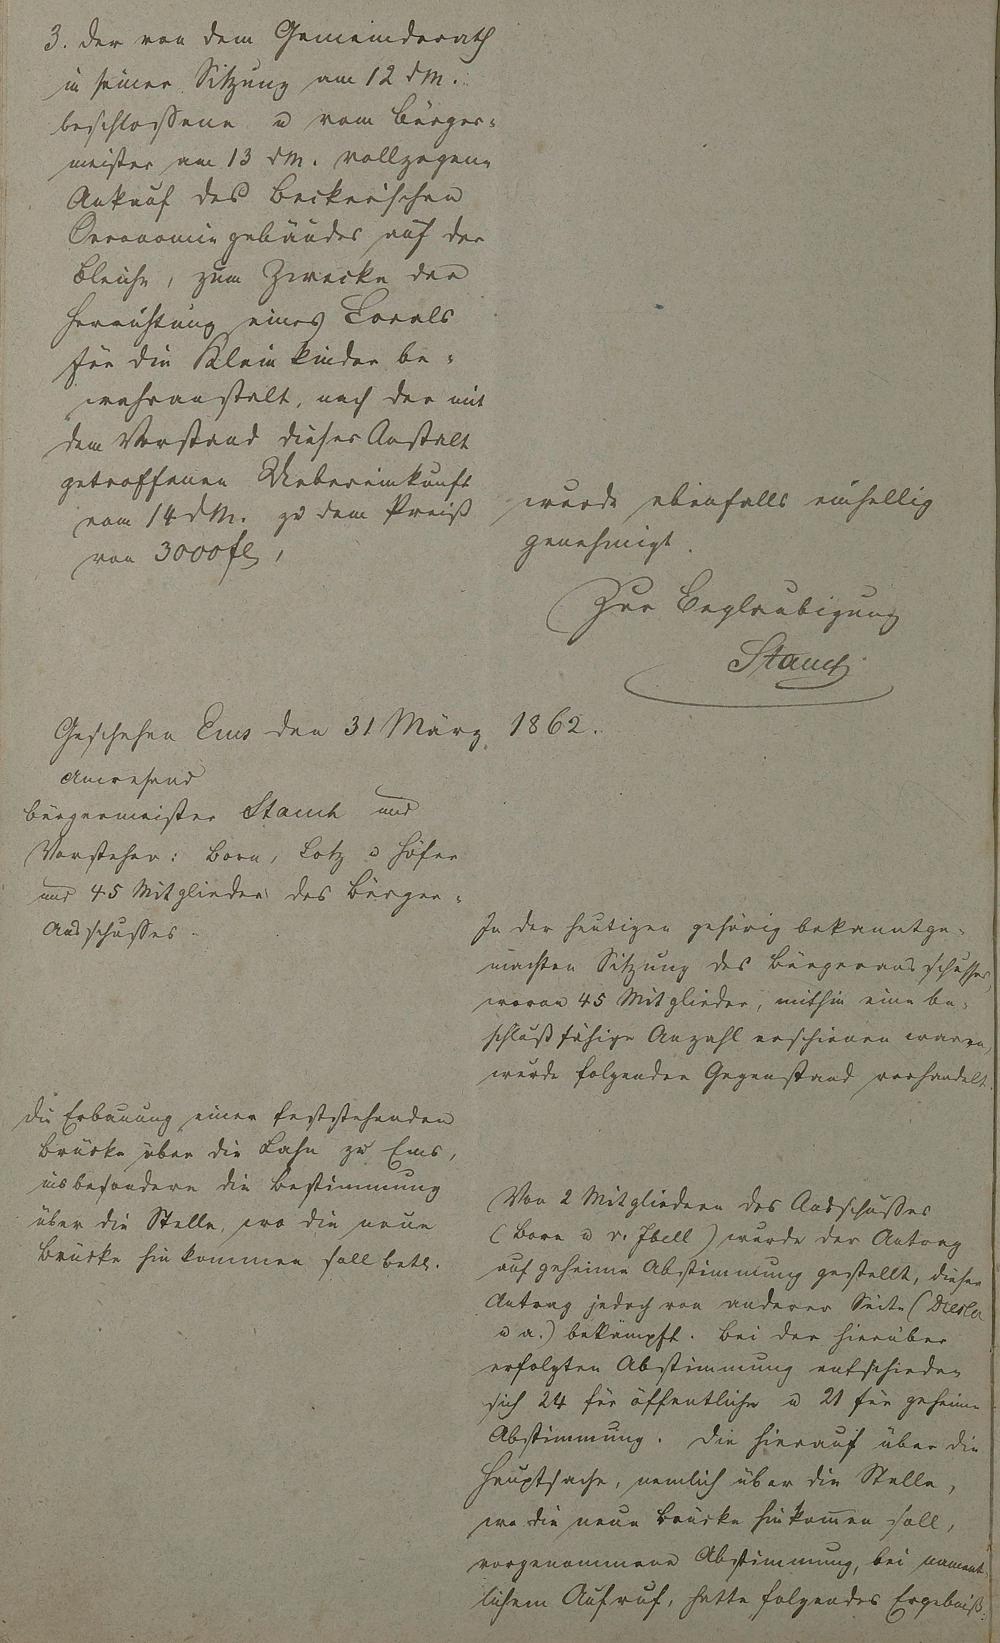 3. der von dem Gemeinderath
in seiner Sitzung am 12 d M.
beschlossene u vom Bürger-
meister am 13 d M. vollzogene
Ankauf des Beckerischen
Oeconomiegebäudes auf der
Bleiche, zum Zwecke der
Herrichtung eines Locals
für die Kleinkinderbe-
wahranstalt, nach der mit
dem Vorstand dieser Anstalt
getroffenen Uebereinkunft
vom 14 d M. zu dem Preiß
von 3000 fl,
wurde ebenfalls einhellig
genehmigt.
Zur Beglaubigung
Stauch
Geschehen Ems den 31 März 1862.
Anwesend
Bürgermeister Stauch und
Vorsteher: Born, Lotz u Höfer
und 45 Mitglieder des Bürger-
Ausschusses.
In der heutigen gehörig bekanntge-
machten Sitzung des Bürgerausschusses,
wovon 45 Mitglieder, mithin eine be-
schlußfähige Anzahl erschienen waren,
wurde folgender Gegenstand verhandelt.
Die Erbauung einer feststehenden
Brücke über die Lahn zu Ems,
insbesondere die Bestimmung
über die Stelle, wo die neue
Brücke hinkommen soll betr.
Von 2 Mitgliedern des Ausschusses
(Born u v. Ibell) wurde der Antrag
auf geheime Abstimmung gestellt, dieser
Antrag jedoch von anderer Seite (
u a.) bekämpft. Bei der hierüber
erfolgten Abstimmung entschieden
sich 24 für öffentliche u 21 für geheime
Abstimmung. Die hierauf über die
Hauptsache, nemlich über die Stelle,
wo die neue Brücke hinkommen soll,
vorgenommene Abstimmung, bei nament-
lichem Aufruf, hatte folgendes Ergebniß: